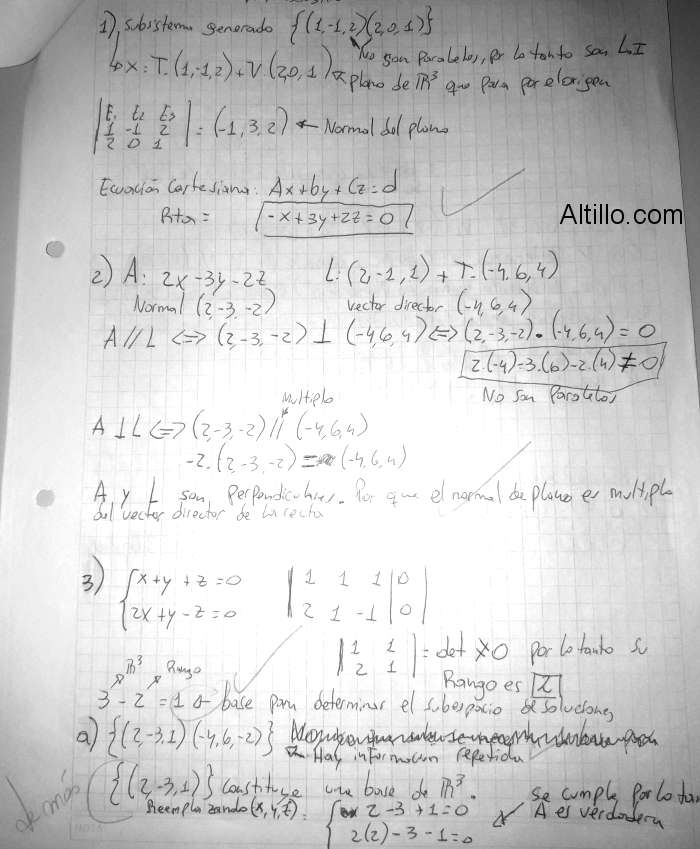 1) Subsistema generado {(1,-1,2)(2,0,1)}
No son Paralelos, por lo tanto son L.I
↳ X: T.(1,-1,2) + V.(2,0,1) plano de ℝ³ que pasa por el origen
|E1 E2 E3|
|1 -1 2| = (-1,3,2) ← Normal del plano
|2 0 1|
Ecuación Cartesiana: Ax+by+Cz=d
Rta = -x+3y+2z=0
Altillo.com
2) A: 2x-3y-2z L: (2,-1,1) + T.(-4,6,4)
Normal (2,-3,-2) vector director (-4,6,4)
A // L <=> (2,-3,-2) ⊥ (-4,6,4) <=> (2,-3,-2)•(-4,6,4) = 0
2.(-4)-3.(6)-2.(4) ≠ 0
No son Paralelos
Multiplo
A ⊥ L <=> (2,-3,-2) // (-4,6,4)
-2.(2,-3,-2) = (-4,6,4)
A y L son Perpendiculares. Por que el normal de plano es multiplo
del vector director de la recta
3) {x+y+z=0 |1 1 1|0|
{2x+y-z=0 |2 1 -1|0|
|1 1| = det ≠ 0 por lo tanto su
|2 1| Rango es 2
ℝ³ Rango
3 - 2 = 1 ← base para determinar el subespacio de soluciones
a) {(2,-3,1)(-4,6,-2)}
Hay informacion repetida
de más {(2,-3,1)} Constituye una base de ℝ³. se cumple por lo tanto
Reemplazando (x,y,z): {2-3+1=0 A es verdadera
{2(2)-3-1=0